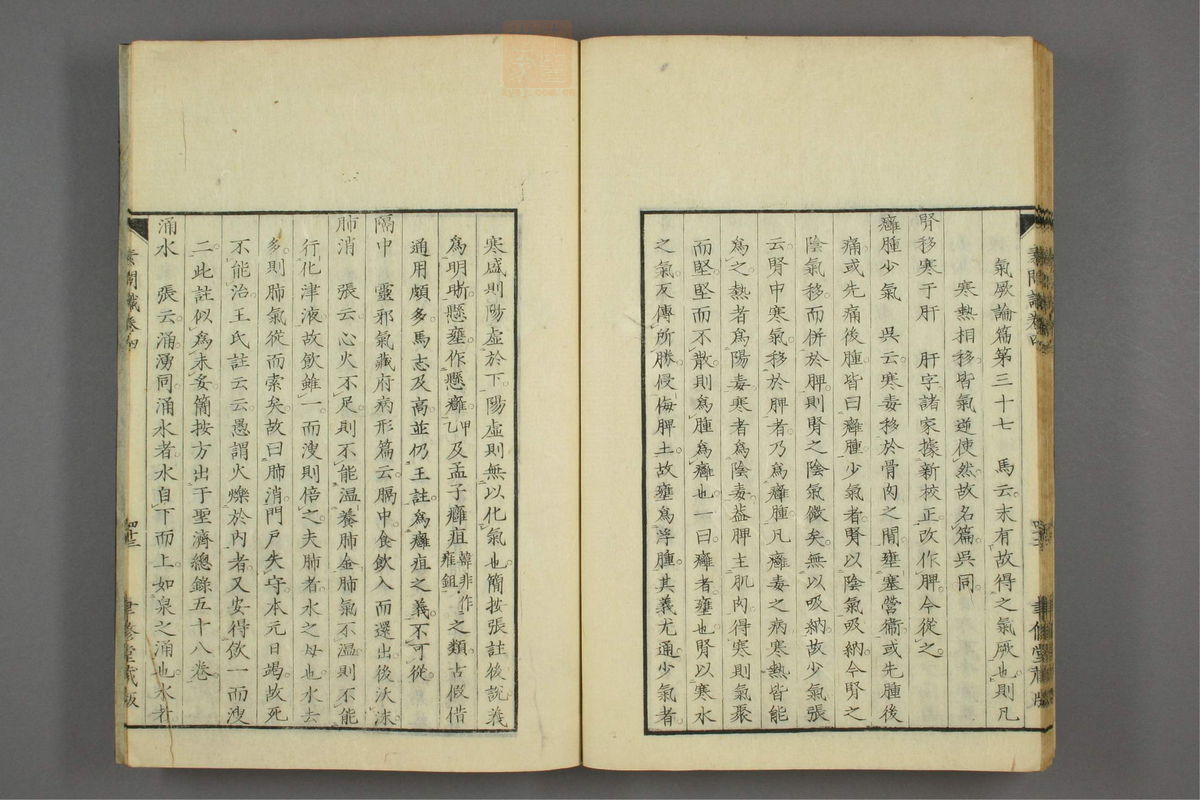 氣厥論篇第三十七　馬云末有故得之氣厥也則凡
寒熱相移皆氣逆使然故名篇吳同
腎移寒于肝　肝字諸家據新校正改作脾今從之
癰腫少氣　吳云寒毒移於骨肉之間壅塞營衞或先腫後
痛或先痛後腫皆曰癰腫少氣者腎以陰氣吸納今腎之
陰氣移而併於脾則腎之陰氣微矣無以吸納故少氣張
云腎中寒氣移於脾者乃爲癰腫凡癰毒之病寒熱皆能
爲之熱者爲陽毒寒者爲陰毒葢脾主肌肉得寒則氣聚
而堅堅而不散則爲腫爲癰也一曰癰者壅也腎以寒水
之氣反傳所勝侵侮脾土故壅爲浮腫其義尤通少氣者
素問識卷四　四十三　聿修堂藏版
寒盛則陽虛於下陽虛則無以化氣也簡按張註後說義
爲明晣懸壅作懸癰甲乙及孟子癰疽韓非作雍鉏之類古假借
通用頗多馬志及高並仍王註爲癰疽之義不可從
隔中　靈邪氣藏府病形篇云膈中食飲入而還出後沃沫
肺消　張云心火不足則不能溫養肺金肺氣不溫則不能
行化津液故飲雖一而溲則倍之夫肺者水之母也水去
多則肺氣從而索矣故曰肺消門戶失守本元日竭故死
不能治王氏註云云愚謂火爍於內者又安得飲一而溲
二此註似爲未妥簡按方出于聖濟總錄五十八卷
涌水　張云涌湧同涌水者水自下而上如泉之涌也水者
素問識卷四　四十三　聿修堂藏版